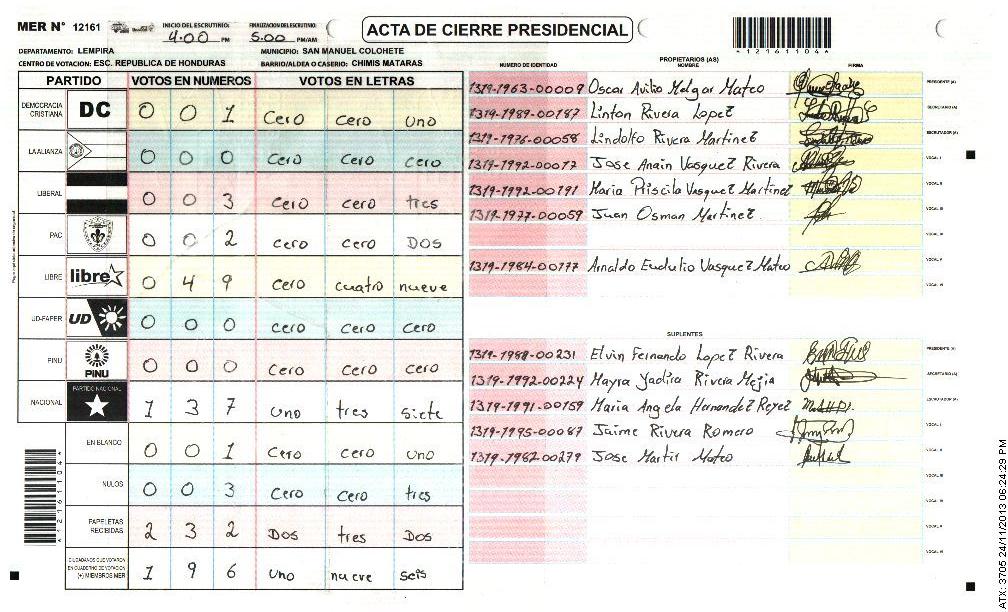 MER N° 12161
INICIO DEL ESCRUTINIO: 4:00 PM
FINALIZACION DEL ESCRUTINIO: 5:00 PM/AM
ACTA DE CIERRE PRESIDENCIAL
*12161104*
DEPARTAMENTO: LEMPIRA
MUNICIPIO: SAN MANUEL COLOHETE
CENTRO DE VOTACION: ESC. REPUBLICA DE HONDURAS
BARRIO/ALDEA O CASERIO: CHIMIS MATARAS
PARTIDO VOTOS EN NUMEROS VOTOS EN LETRAS
DEMOCRACIA CRISTIANA DC 0 0 1 Cero Cero Uno
LA ALIANZA 0 0 0 Cero Cero Cero
LIBERAL 0 0 3 Cero Cero tres
PAC 0 0 2 Cero Cero Dos
LIBRE libre 0 4 9 Cero cuatro nueve
UD-FAPER UD 0 0 0 Cero Cero Cero
PINU PINU 0 0 0 Cero Cero Cero
NACIONAL PARTIDO NACIONAL 1 3 7 Uno tres Siete
EN BLANCO 0 0 1 Cero Cero Uno
NULOS 0 0 3 Cero Cero tres
PAPELETAS RECIBIDAS 2 3 2 Dos tres Dos
CIUDADANOS QUE VOTARON EN CUADERNO DE VOTACION (+) MIEMBROS MER 1 9 6 Uno nueve seis
*12161104*
PROPIETARIOS (AS)
NUMERO DE IDENTIDAD NOMBRE FIRMA
1319-1963-00009 Oscar Avilio Melgar Mateo PRESIDENTE (A)
1319-1989-00187 Linton Rivera Lopez SECRETARIO (A)
1319-1976-00058 Lindolfo Rivera Martinez ESCRUTADOR (A)
1319-1992-00077 Jose Anain Vasquez Rivera VOCAL I
1319-1992-00191 Maria Priscila Vasquez Martinez VOCAL II
1319-1977-00059 Juan Osman Martinez VOCAL III
VOCAL IV
1319-1984-00177 Arnaldo Eudulio Vasquez Mateo VOCAL V
VOCAL VI
SUPLENTES
1319-1988-00231 Elvin Fernando Lopez Rivera PRESIDENTE (A)
1319-1992-00224 Mayra Yadira Rivera Mejia SECRETARIO (A)
1319-1991-00159 Maria Angela Hernandez Reyez ESCRUTADOR (A)
1319-1995-00087 Jaime Rivera Romero VOCAL I
1319-1982-00279 Jose Martir Mateo VOCAL II
VOCAL III
VOCAL IV
VOCAL V
VOCAL VI
ATX: 3705 24/11/2013 06:24:29 PM